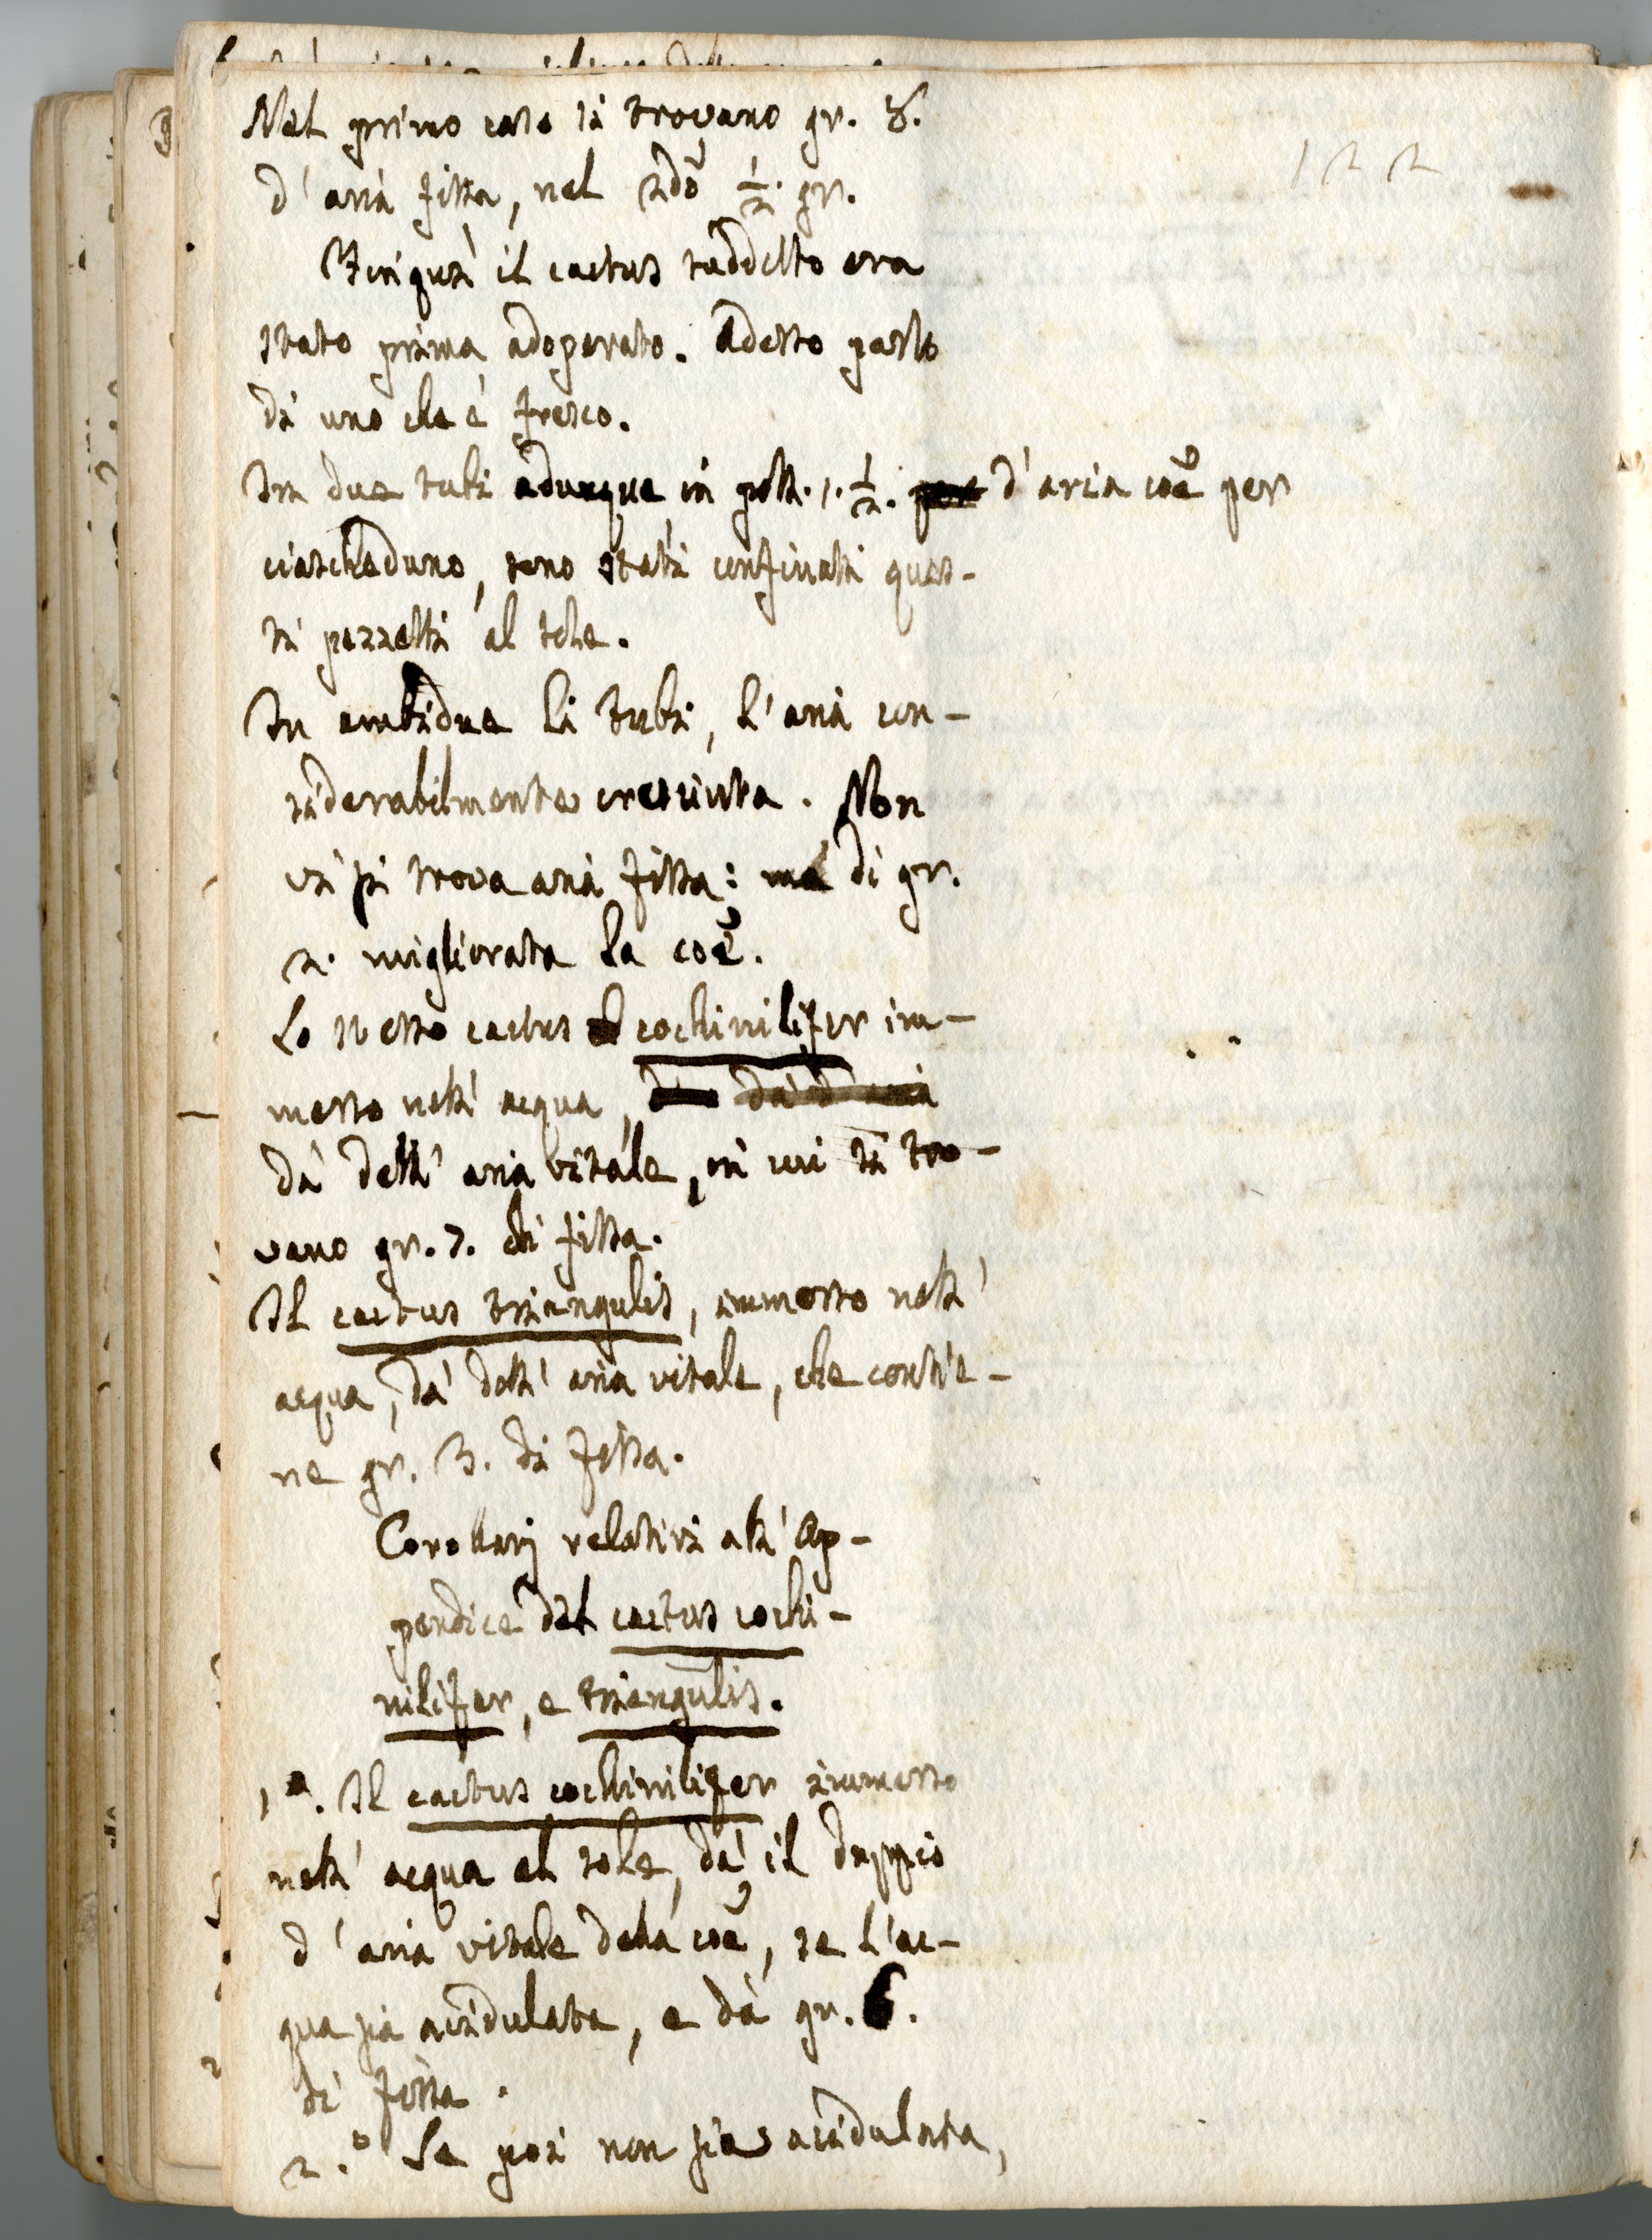 122
Nel primo caso si trovano gr. 8.
d'aria fissa, nel 2do 1/2. gr.
Finquì il cactus suddetto era
stato prima adoperato. Adesso parlo
di uno che è fresco.
In due tubi adunque in poll. 1. 1/2. d'aria coe per
ciascheduno, sono stati confinati ques-
ti pezzetti al sole.
In ambidue li tubi, l'aria con-
siderabilmente cresciuta. Non
vi si trova aria fissa: ma di gr.
2. migliorata la coe.
Lo stesso cactus cochinilifer im-
merso nell'acqua, da d'aria
dà dell'aria vitale, in cui si tro-
vano gr. 7. di fissa.
Il cactus triangulis, immerso nell'
acqua, dà dell'aria vitale, che contie-
ne gr. 3. di fissa.
Corollarj relativi all'Ap-
pendice del cactus cochi-
nilifer, e triangulis.
1°. Il cactus cochinilifer immerso
nell'acqua al sole, dà il doppio
d'aria vitale della coe, se l'ac-
qua sia acidulata, e dà gr. 6.
di fissa.
2.° Se poi non sia acidulata,